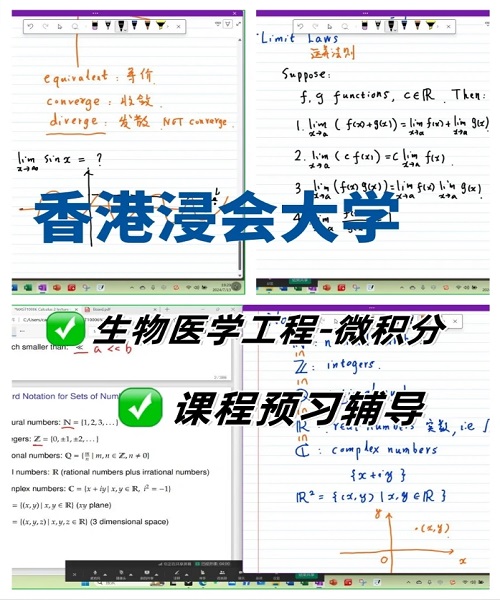 equivalent : 等价
converge : 收敛
diverge : 发散 NOT converge.
lim sin x = ?
x→∞
Limit Laws
运算法则
Suppose:
f, g functions, c∈ℝ. Then:
1. lim (f(x)+g(x)) = lim f(x) + lim g(x)
x→a x→a x→a
2. lim (c f(x)) = c lim f(x).
x→a x→a
3. lim (f(x) g(x)) = lim f(x) lim g(x)
x→a x→a x→a
4. lim
香港浸会大学
✅ 生物医学工程-微积分
✅ 课程预习辅导
ch smaller than: ≪ a << b
rd Notation for Sets of Num
ural numbers: ℕ = {1, 2, 3, . . .}
gers: ℤ = {0, ±1, ±2, . . .}
onal numbers: ℚ = {m/n | m, n ∈ ℤ, n ≠ 0}
l numbers: ℝ (rational numbers plus irrational numbers)
mplex numbers: ℂ = {x + iy | x, y ∈ ℝ, i² = −1}
= {(x, y) | x, y ∈ ℝ} (xy plane)
= {(x, y, z) | x, y, z ∈ ℝ} (3 dimensional space)
ℤ: integers.
ℝ: real numbers 实数, i.e.
ℂ: complex numbers
{x+iy}
ℝ² = {(x,y) | x,y ∈ ℝ}
y
(x,y)
0
x